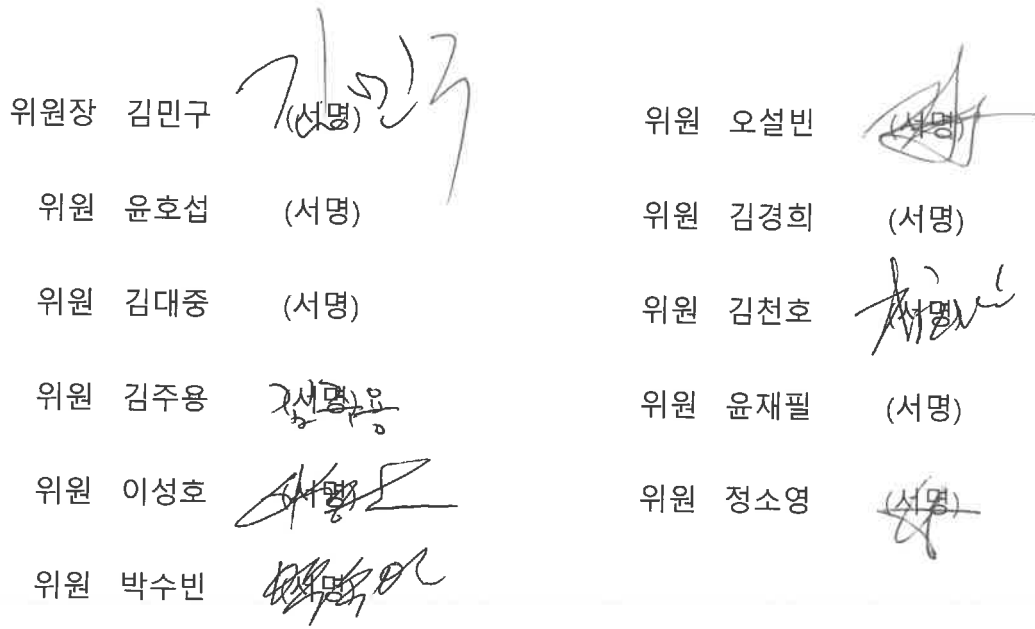 위원장 김민구 (서명) 김민구
위원 윤호섭 (서명)
위원 김대중 (서명)
위원 김주용 (서명) 김주용
위원 이성호 (서명)
위원 박수빈 (서명)
위원 오설빈 (서명)
위원 김경희 (서명)
위원 김천호 (서명)
위원 윤재필 (서명)
위원 정소영 (서명)